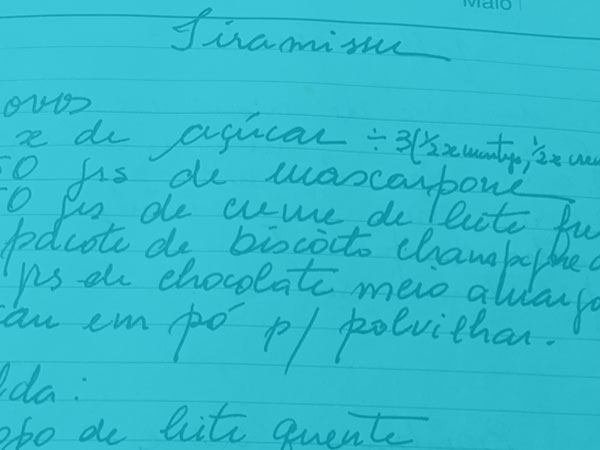 Maio
Tiramissu
ovos
x de açúcar ÷ 3(½x manteiga, ½x creme
50 grs de mascarpone
50 grs de creme de leite fre
pacote de biscoito champagne
grs de chocolate meio amargo
cau em pó p/ polvilhar.
lda:
opo de leite quente